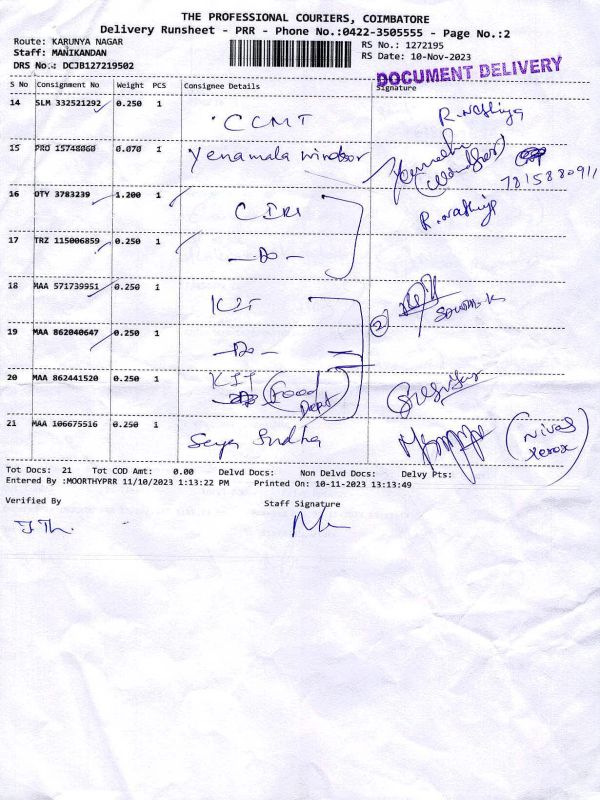 THE PROFESSIONAL COURIERS, COIMBATORE
Delivery Runsheet - PRR - Phone No.:0422-3505555 - Page No.:2
Route: KARUNYA NAGAR RS No.: 1272195
Staff: MANIKANDAN RS Date: 10-Nov-2023
DRS No.: DCJB127219502 DOCUMENT DELIVERY
S No Consignment No Weight PCS Consignee Details Signature
14 SLM 332521292 0.250 1 CCMT R. Nathiya
15 PRO 15748060 0.070 1 Yenamala Windsor (Windsor)
7815880911
16 OTY 3783239 1.200 1 CDRI R. Nathiya
17 TRZ 115006859 0.250 1 —Do—
18 MAA 571739951 0.250 1 KIT
19 MAA 862040647 0.250 1 —Do— 2
20 MAA 862441520 0.250 1 KIT (Food Dept)
21 MAA 106675516 0.250 1 Seya Sudha (Nivas Xerox)
Tot Docs: 21 Tot COD Amt: 0.00 Delvd Docs: Non Delvd Docs: Delvy Pts:
Entered By :MOORTHYPRR 11/10/2023 1:13:22 PM Printed On: 10-11-2023 13:13:49
Verified By Staff Signature